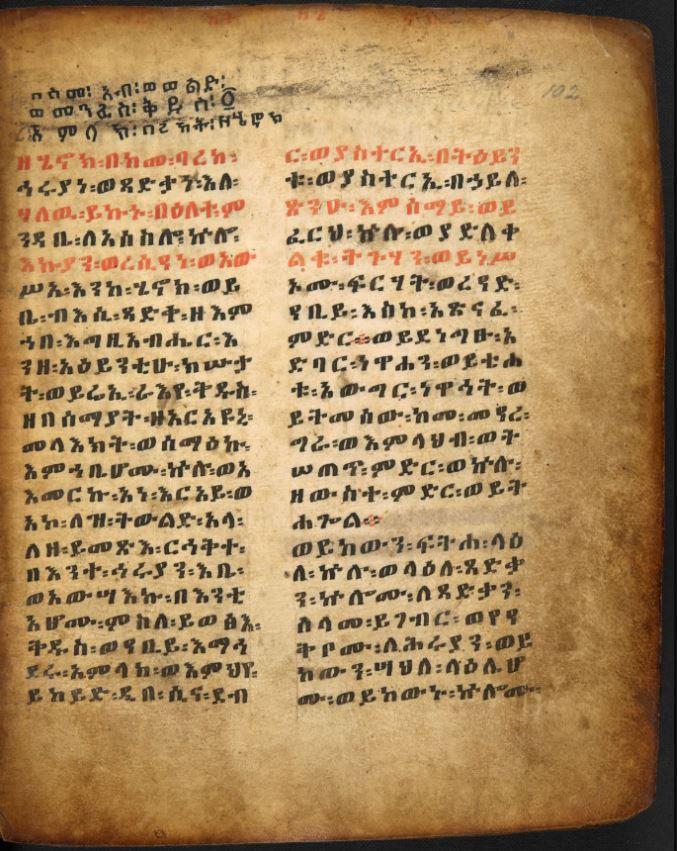 በስመ፡ አብ፡ ወወልድ፡
ወመንፈስ፡ ቅዱስ፡ ፩
አምላክ፡ በረከት፡ ዘሄኖክ
ዘሄኖክ፡ በከመ፡ ባረከ፡
ኅሩያነ፡ ወጻድቃን፡ እለ፡
ሃለዉ፡ ይኩኑ፡ በዕለተ፡ ም
ንዳቤ፡ ለአሰስሎ፡ ኵሎ፡
እኩያን፡ ወረሲዓነ፡ ወአው
ሥአ፡ እንከ፡ ሄኖክ፡ ወይ
ቤ፡ ብእሲ፡ ጻድቅ፡ ዘእም
ኀበ፡ እግዚአብሔር፡ እ
ንዘ፡ አዕይንቲሁ፡ ክሡታ
ት፡ ወይሬኢ፡ ራእየ፡ ቅዱስ፡
ዘበሰማያት፡ ዘአርአዩኒ፡
መላእክት፡ ወሰማዕኩ፡
እምኀቤሆሙ፡ ኵሎ፡ ወአ
እመርኩ፡ አነ፡ እርአይ፡ ወ
አኮ፡ ለዝ፡ ትውልድ፡ አላ፡
ለዘ፡ ይመጽእ፡ ርኅቅተ፡
በእንተ፡ ኅሩያን፡ እቤ፡
ወአውሣእኩ፡ በእንቲ
አሆሙ፡ ምስለ፡ ይወፅእ፡
ቅዱስ፡ ወዓቢይ፡ እማኅ
ደሩ፡ አምላክ፡ ወእምህየ፡
ይከይድ፡ ዲበ፡ ሲና፡ ደብ
ር፡ ወያስተርኢ፡ በትዕይን
ቱ፡ ወያስተርኢ፡ በኃይለ፡
ጽንዑ፡ እምሰማይ፡ ወይ
ፈርህ፡ ኵሉ፡ ወያድለቀ
ልቁ፡ ትጉሃን፡ ወይነሥ
ኦሙ፡ ፍርሃት፡ ወረዓድ፡
ዓቢይ፡ እስከ፡ አጽናፈ፡
ምድር፡ ወይደነግፁ፡ አ
ድባር፡ ነዋኃን፡ ወይቴሐ
ቱ፡ አውግር፡ ነዋኃት፡ ወ
ይትመሰው፡ ከመ፡ መዓረ፡
ግራ፡ ወእምላህብ፡ ወት
ሠጠጥ፡ ምድር፡ ወኵሉ፡
ዘውስተ፡ ምድር፡ ወይት
ሐጐል፡
ወይከውን፡ ፍትሐ፡ ላዕ
ለ፡ ኵሉ፡ ወላዕለ፡ ጻድቃ
ን፡ ኵሎሙ፡ ለጻድቃን፡
ሰላመ፡ ይገብር፡ ወየዓ
ቅቦሙ፡ ለኅሩያን፡ ወይ
ከውን፡ ሣህለ፡ ላዕሌሆ
ሙ፡ ወይከውኑ፡ ኵሎሙ፡